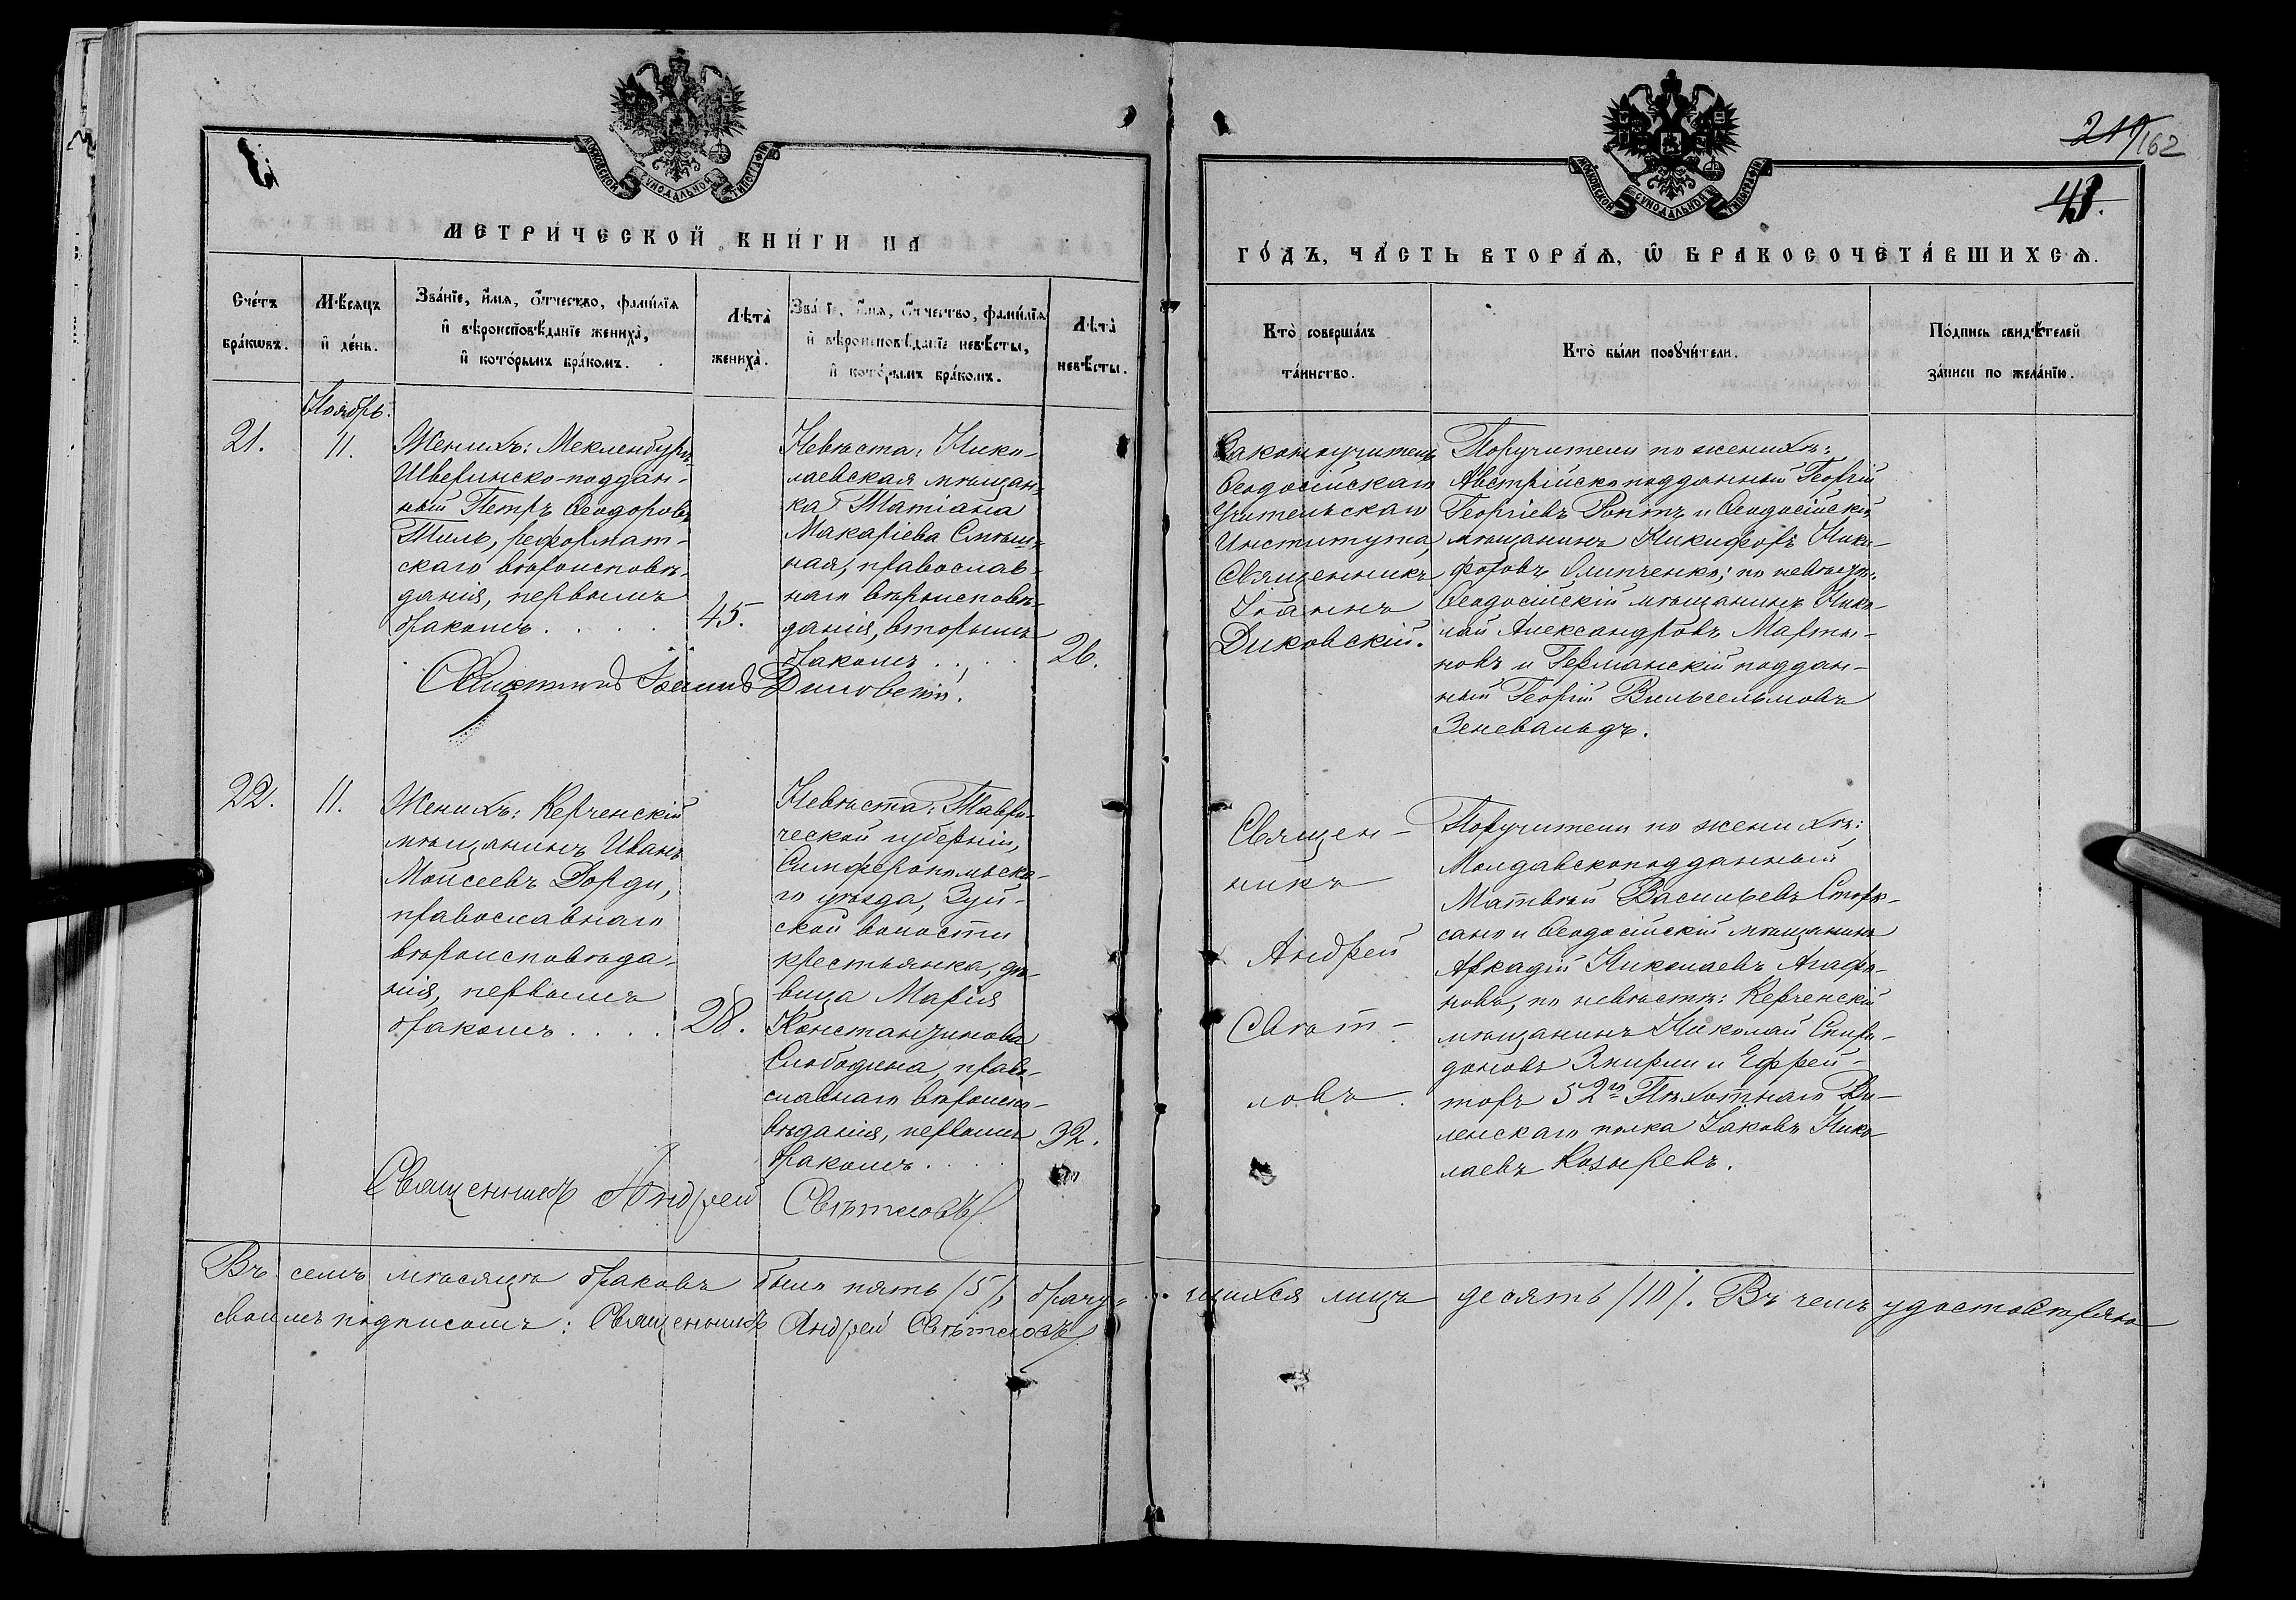 МОСКОВСКОЙ СѴНОДАЛЬНОЙ ТИПОГРАФІИ
МЕТРИЧЕСКОЙ КНИГИ НА
Счетъ браковъ.
Мѣсяцъ и день.
Званіе, имя, отчество, фамилія и вѣроисповѣданіе жениха, и которымъ бракомъ.
Лѣта жениха.
Званіе, имя, отчество, фамилія и вѣроисповѣданіе невѣсты, и которымъ бракомъ.
Лѣта невѣсты.
Ноябрь.
21.
11.
Женихъ: Мекленбургъ-
Шверинско-поддан-
ный Петръ Ѳеодоровъ
Тиль, реформат-
скаго вѣроисповѣ-
данія, первымъ
бракомъ . . . .
45.
Невѣста: Нико-
лаевская мѣщан-
ка Татіана
Макаріева Смѣш-
ная, православ-
наго вѣроисповѣ-
данія, вторымъ
бракомъ . . . .
26.
Священникъ Іоаннъ Диковскій.
22.
11.
Женихъ: Керченскій
мѣщанинъ Иванъ
Моисеевъ Дорди,
православнаго
вѣроисповѣда-
нія, первымъ
бракомъ . . . .
28.
Невѣста: Таври-
ческой губерніи,
Симферопольска-
го уѣзда, Зуй-
ской волости
крестьянка, дѣ-
вица Марія
Константинова
Слободина, право-
славнаго вѣроиспо-
вѣданія, первымъ
бракомъ . . . .
32.
Священникъ Андрей Свѣтловъ
МОСКОВСКОЙ СѴНОДАЛЬНОЙ ТИПОГРАФІИ
162
43.
ГОДЪ, ЧАСТЬ ВТОРАЯ, Ѡ БРАКОСОЧЕТАВШИХСЯ.
Кто совершалъ таинство.
Кто были поручители.
Подпись свидѣтелей записи по желанію.
Законоучитель
Ѳеодосійскаго
Учительскаго
Института,
Священникъ
Іоаннъ
Диковскій.
Поручители по женихѣ:
Австрійскоподданный Георгій
Георгіевъ и Ѳеодосійскій
мѣщанинъ Никифоръ Ники-
форовъ Олипченко; по невѣстѣ:
Ѳеодосійскій мѣщанинъ Нико-
лай Александровъ Марты-
новъ и Германскій поддан-
ный Георгій Вильгельмовъ
Зеневальдъ.
Священ-
никъ
Андрей
Свѣт-
ловъ
Поручители по женихѣ:
Молдавскоподданный
Матвѣй Васильевъ
и Ѳеодосійскій мѣщанинъ
Аркадій Николаевъ Агафо-
новъ, по невѣстѣ: Керченскій
мѣщанинъ Николай Спири-
доновъ и Ефрей-
торъ 52го Пѣхотнаго Ви-
ленскаго полка Іаковъ Нико-
лаевъ Козыревъ.
Въ семъ мѣсяцѣ браковъ было пять /5/, брачу- щихся лицъ десять /10/. Въ чемъ удостовѣряю
своимъ подписомъ: Священникъ Андрей Свѣтловъ